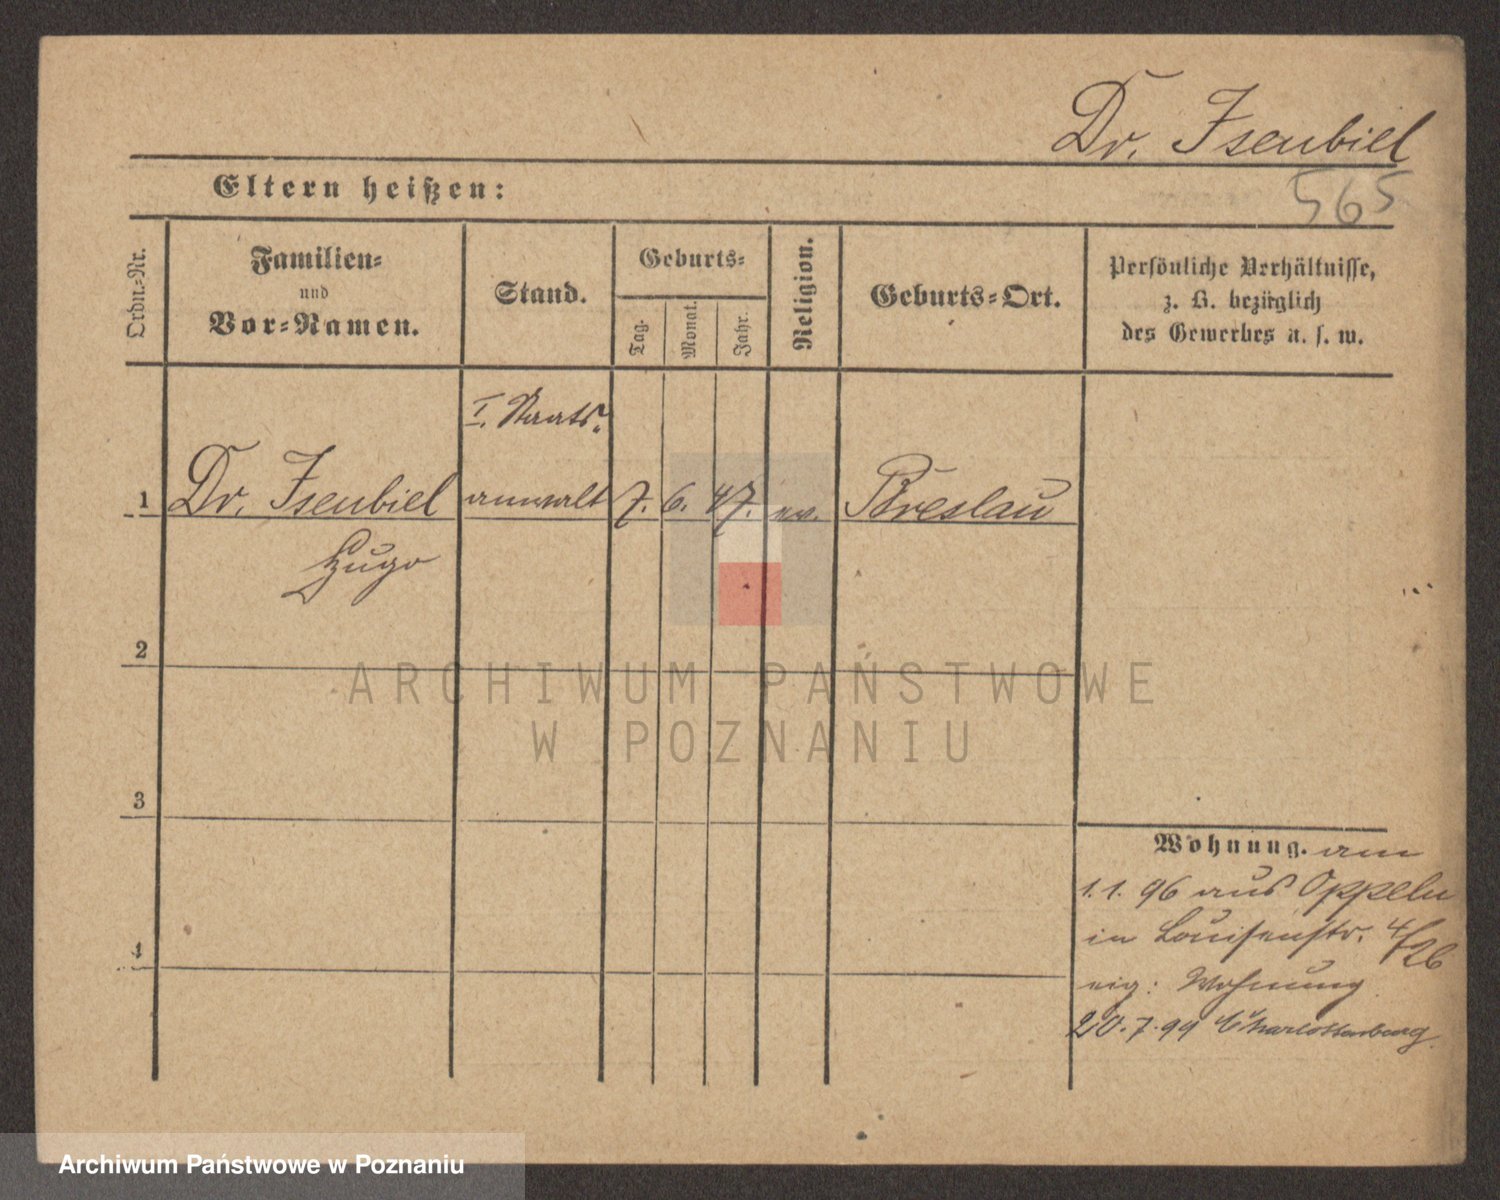 Dr. Isenbiel
565
Eltern heißen:
Ordn.-Nr.
Familien-
und
Vor-Namen.
Stand.
Geburts-
Tag.
Monat.
Jahr.
Religion.
Geburts-Ort.
Persönliche Verhältnisse,
z. B. bezüglich
des Gewerbes u. s. w.
I. Staats-
1 Dr. Isenbiel anwalt 7. 6. 47. ev. Breslau
Hugo
2
3
4
Wohnung. am
1.1.96 aus Oppeln
in Louisenstr. 4/26
eig: Wohnung
20.7.99 Charlottenburg.
ARCHIWUM PAŃSTWOWE
W POZNANIU
Archiwum Państwowe w Poznaniu